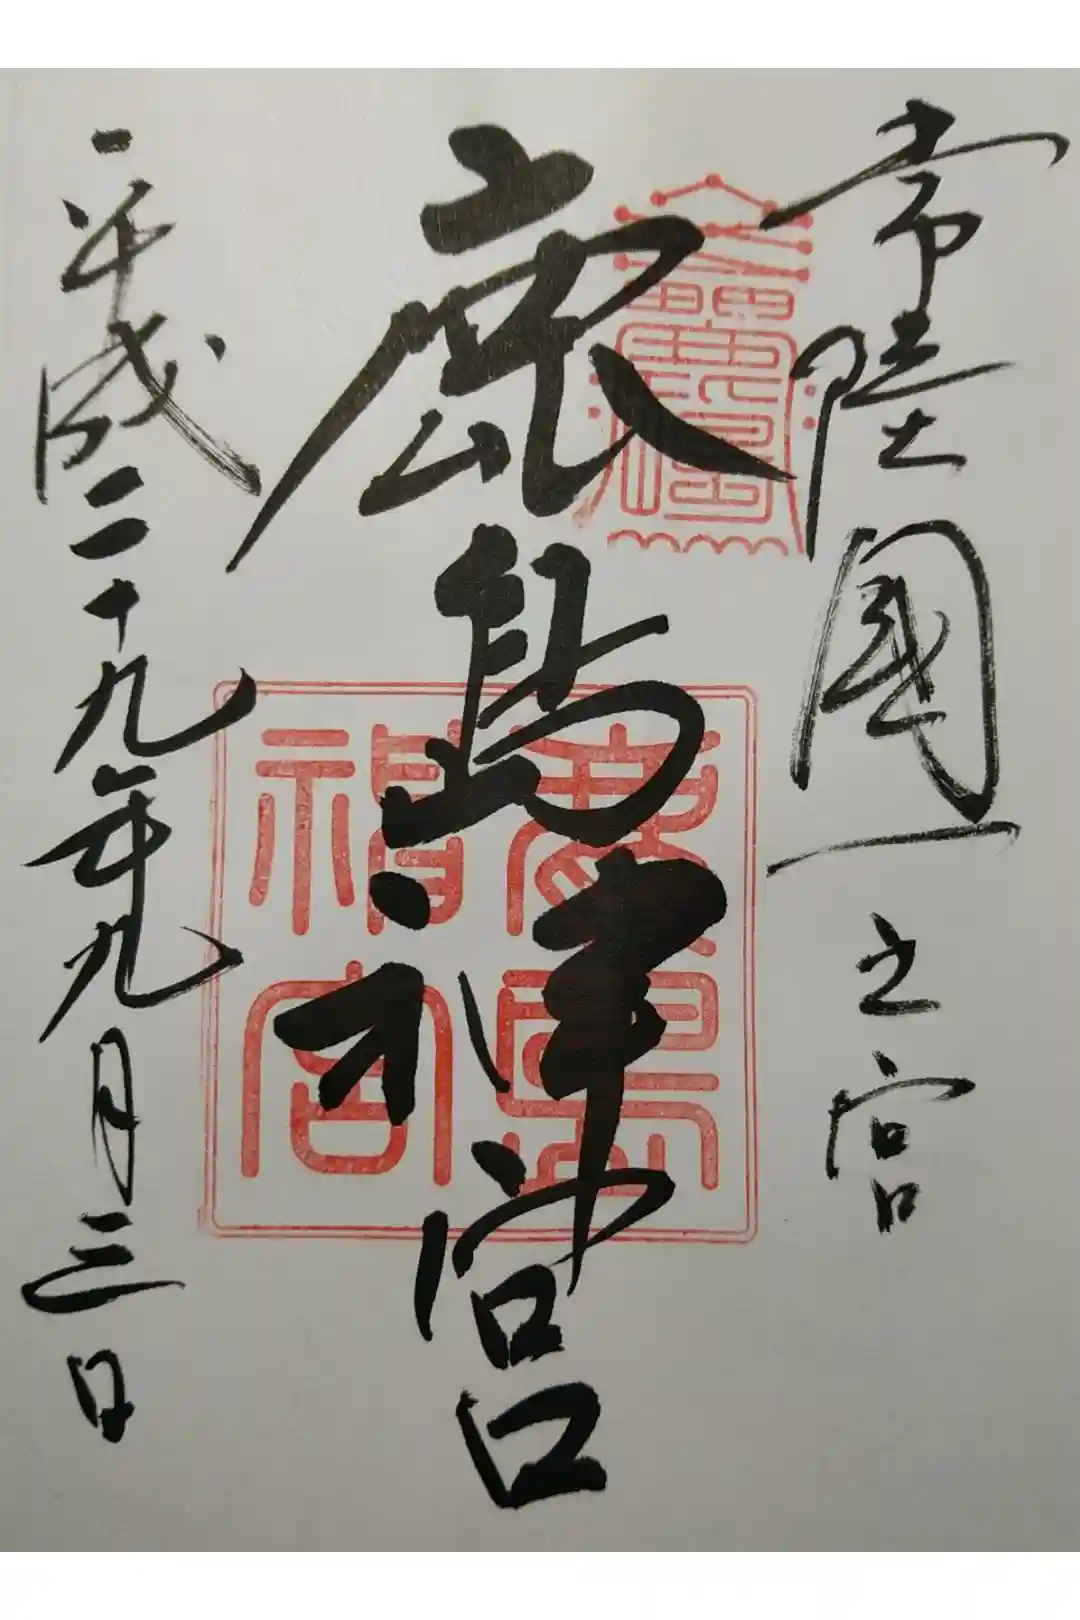 常陸國一之宮
鹿島神宮
鹿島神宮
平成二十九年九月三日